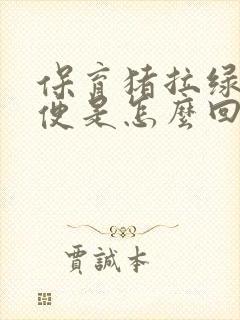 保育猪拉绿
便是怎麼回
賈誠本